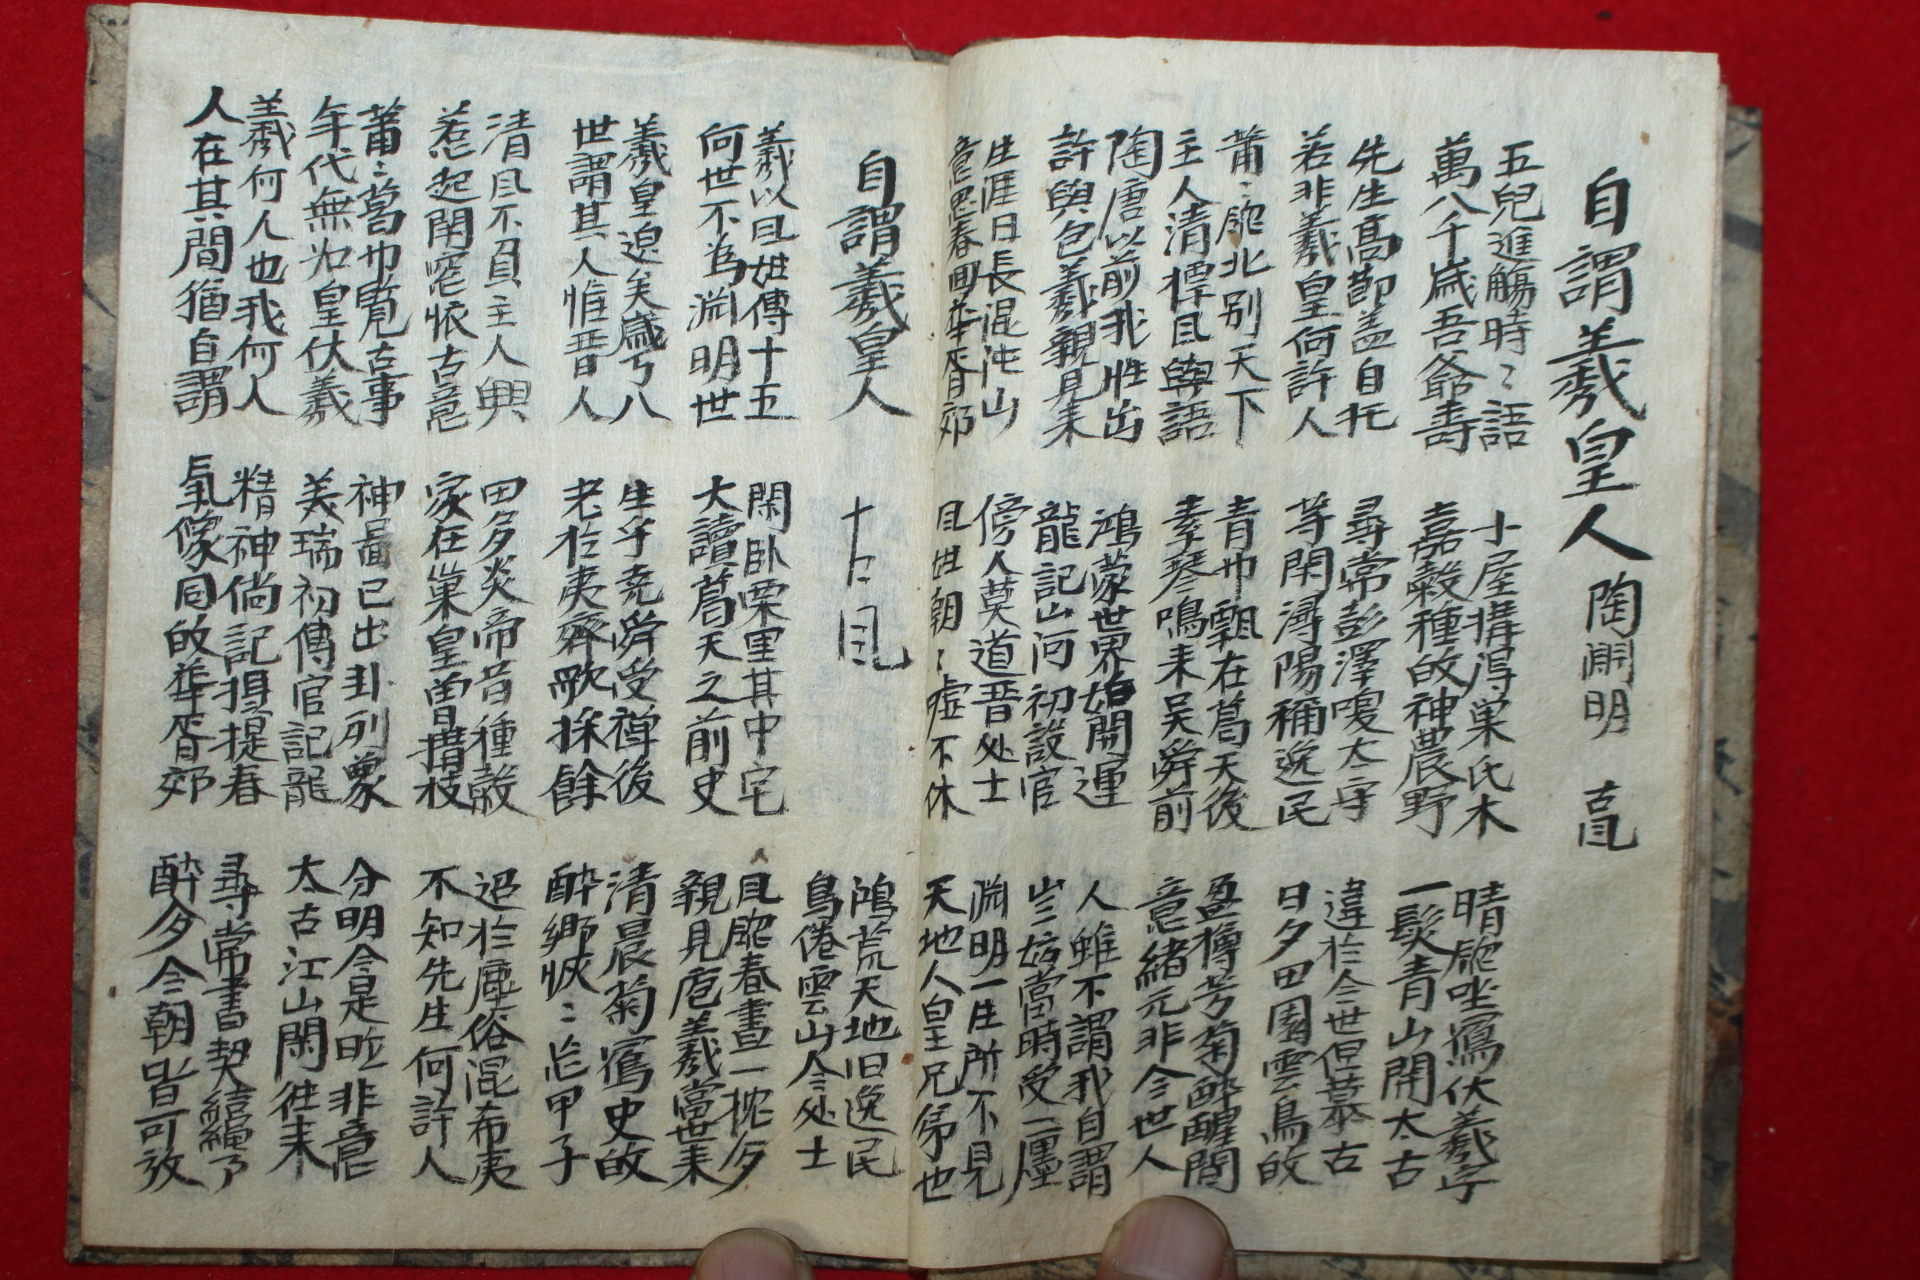 自謂羲皇人 陶淵明 古風
五兒進觴時ミ語
萬八千歲吾爺壽
小屋構得巢氏木
嘉穀種的神農野
晴牕坐寫伏羲字
一髮青山開太古
先生高節盖自托
若非羲皇何許人
尋常彭澤嗄太守
等閑潯陽稱逸民
違於今世但慕古
日夕田園雲鳥的
莆ミ牕北别天下
主人清標風與語
青巾飄在葛天後
素琴鳴来吴舜前
盈樽芳菊醉醒間
意緒元非今世人
陶唐以前我性出
許與包羲親見来
鴻濛世界始開運
龍記山河初設官
人雖不謂我自謂
當時受一廛
生涯日長混沌山
意思春回華胥郊
傍人莫道晋处士
風姓朝ミ嘘不休
淵明一生所不見
天地人皇兄弟也
鴻荒天地旧逸民
鳥倦雲山今处士
自謂羲皇人 古風
羲以風姓傳十五
何世不為淵明世
閑卧栗里其中宅
大讀葛天之前史
風牕春晝一枕夕
親見庖羲當世来
羲皇邈矣歲丂八
世謂其人惟晋人
生乎堯舜受禅後
老於夷齊歌採餘
清晨菊寫史的
醉鄉恢ミ忘甲子
清風不負主人興
惹起閑窓恢古意
田多炎帝昔種穀
家在巢皇曾措枝
迢於塵俗混希夷
不知先生何許人
莆ミ葛巾覓古事
年代無如皇伏羲
神啚已出卦列象
美瑞初傳官記龍
分明今是昨非意
太古江山閑往来
羲何人也我何人
人在其間猶自謂
精神倘記揖提春
氣像同的華胥郊
尋常書契結繩了
醉夕今朝皆可放